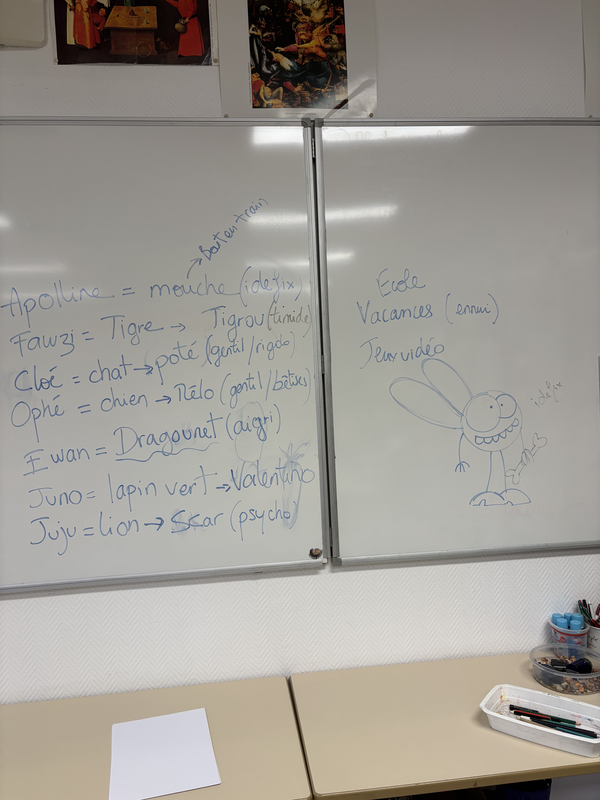 Boutentrain
Apolline = mouche (idefix)
Fawzi = Tigre → Tigrou (timide)
Cloé = chat → poté (gentil / rigolo)
Ophé = chien → Rélo (gentil / bêtises)
Ewan = Dragounet (aigri)
Juno = lapin vert → Valentino
Juju = lion → Scar (psycho)
Ecole
Vacances (ennui)
Jeux vidéo
idefix